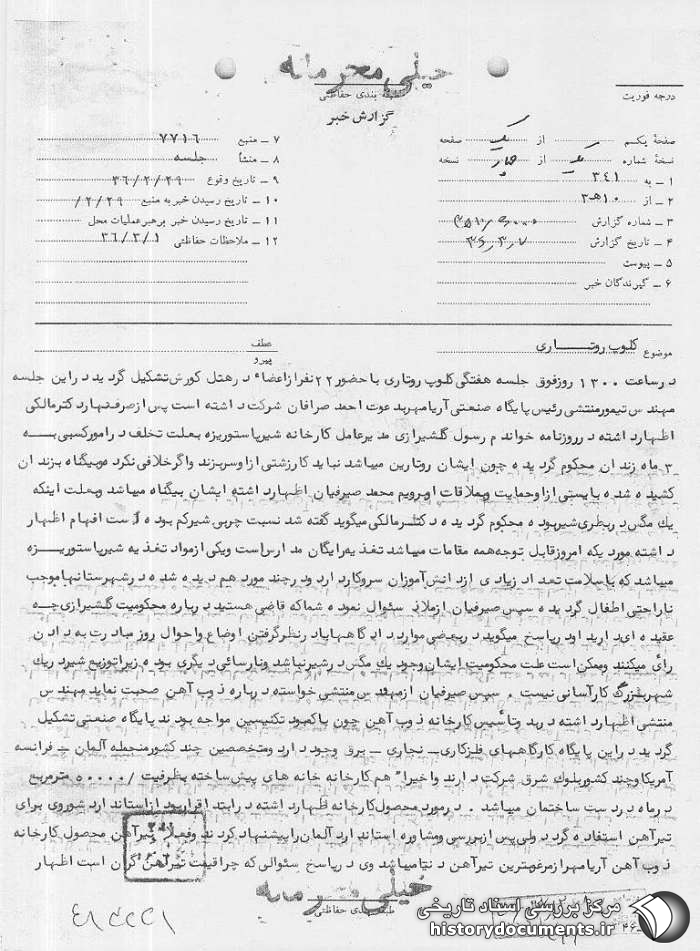 خیلی محرمانه
طبقه بندی حفاظتی
درجه فوریت
گزارش خبر
صفحهٔ یکم از یک صفحه
نسخهٔ شماره از چهار نسخه
۱ـ به ۳۴۱
۲ـ از ۱۰هـ۳
۳ـ شماره گزارش
۴ـ تاریخ گزارش ۳۶/۳/۷
۵ـ پیوست
۶ـ گیرندگان خبر
۷ـ منبع ۷۷۱۶
۸ـ منشأ جلسه
۹ـ تاریخ وقوع ۳۶/۲/۲۹
۱۰ـ تاریخ رسیدن خبر به منبع ۲/۲۹/
۱۱ـ تاریخ رسیدن خبر برهبر عملیات محل
۱۲ـ ملاحظات حفاظتی ۳۶/۳/۱
موضوع کلوپ روتاری
عطف
پیرو
در ساعت ۱۳۰۰ روز فوق جلسه هفتگی کلوپ روتاری با حضور ۲۲ نفر از اعضاء در هتل کورش تشکیل گردید در این جلسه
مهندس تیمور منتشی رئیس پایگاه صنعتی آریامهر بدعوت احمد صرافان شرکت داشته است پس از صرف نهار دکتر مالکی
اظهار داشته در روزنامه خواندم رسول گلشیرازی مدیر عامل کارخانه شیر پاستوریزه بعلت تخلف در امور کسبی به
۳ ماه زندان محکوم گردیده چون ایشان روتارین میباشد نباید کار زشتی از او سر بزند و اگر خلافی نکرده و بیگناه بزندان
کشیده شده بایستی از او حمایت و بملاقات او برویم محمد صیرفیان اظهار داشته ایشان بیگناه میباشد و بعلت اینکه
یک مگس در بطری شیر بوده محکوم گردیده دکتر مالکی میگوید گفته شد نسبت چربی شیر کم بوده است افهام اظهار
داشته موردیکه امروز قابل توجه همه مقامات میباشد تغذیه رایگان مدارس است و یکی از مواد تغذیه شیر پاستوریزه
میباشد که با سلامت تعداد زیادی از دانش آموزان سر و کار دارد و در چند مورد هم دیده شده در شهرستانها موجب
ناراحتی اطفال گردیده سپس صیرفیان از ملاذ سئوال نموده شما که قاضی هستید درباره محکومیت گلشیرازی چه
عقیده ای دارید او در پاسخ میگوید در بعضی موارد دادگاهها با در نظر گرفتن اوضاع و احوال روز مبادرت به دادن
رأی میکنند و ممکن است علت محکومیت ایشان وجود یک مگس در شیر نباشد و نارسائی دیگری بوده زیرا توزیع شیر در یک
شهر بزرگ کار آسانی نیست . سپس صیرفیان از مهندس منتشی خواسته درباره ذوب آهن صحبت نماید مهندس
منتشی اظهار داشته در بدو تأسیس کارخانه ذوب آهن چون با کمبود تکنیسین مواجه بودند پایگاه صنعتی تشکیل
گردید در این پایگاه کارگاههای فلزکاری ـ نجاری ـ برق وجود دارد و متخصصین چند کشور منجمله آلمان ـ فرانسه
آمریکا و چند کشور بلوک شرق شرکت دارند و اخیراً هم کارخانه خانه های پیش ساخته بظرفیت ۵۰۰۰۰/ متر مربع
در ماه در دست ساختمان میباشد . در مورد محصول کارخانه اظهار داشته در ابتدا قرار بود از استاندارد شوروی برای
تیرآهن استفاده گردد ولی پس از بررسی و مشاوره استاندارد آلمان را پیشنهاد کردند و فعلاً تیرآهن محصول کارخانه
ذوب آهن آریامهر از مرغوبترین تیرآهن دنیا میباشد وی در پاسخ سئوالی که چرا قیمت تیرآهن گران است اظهار
خیلی محرمانه
طبقه بندی حفاظتی
مرکز بررسی اسناد تاریخی
historydocuments.ir